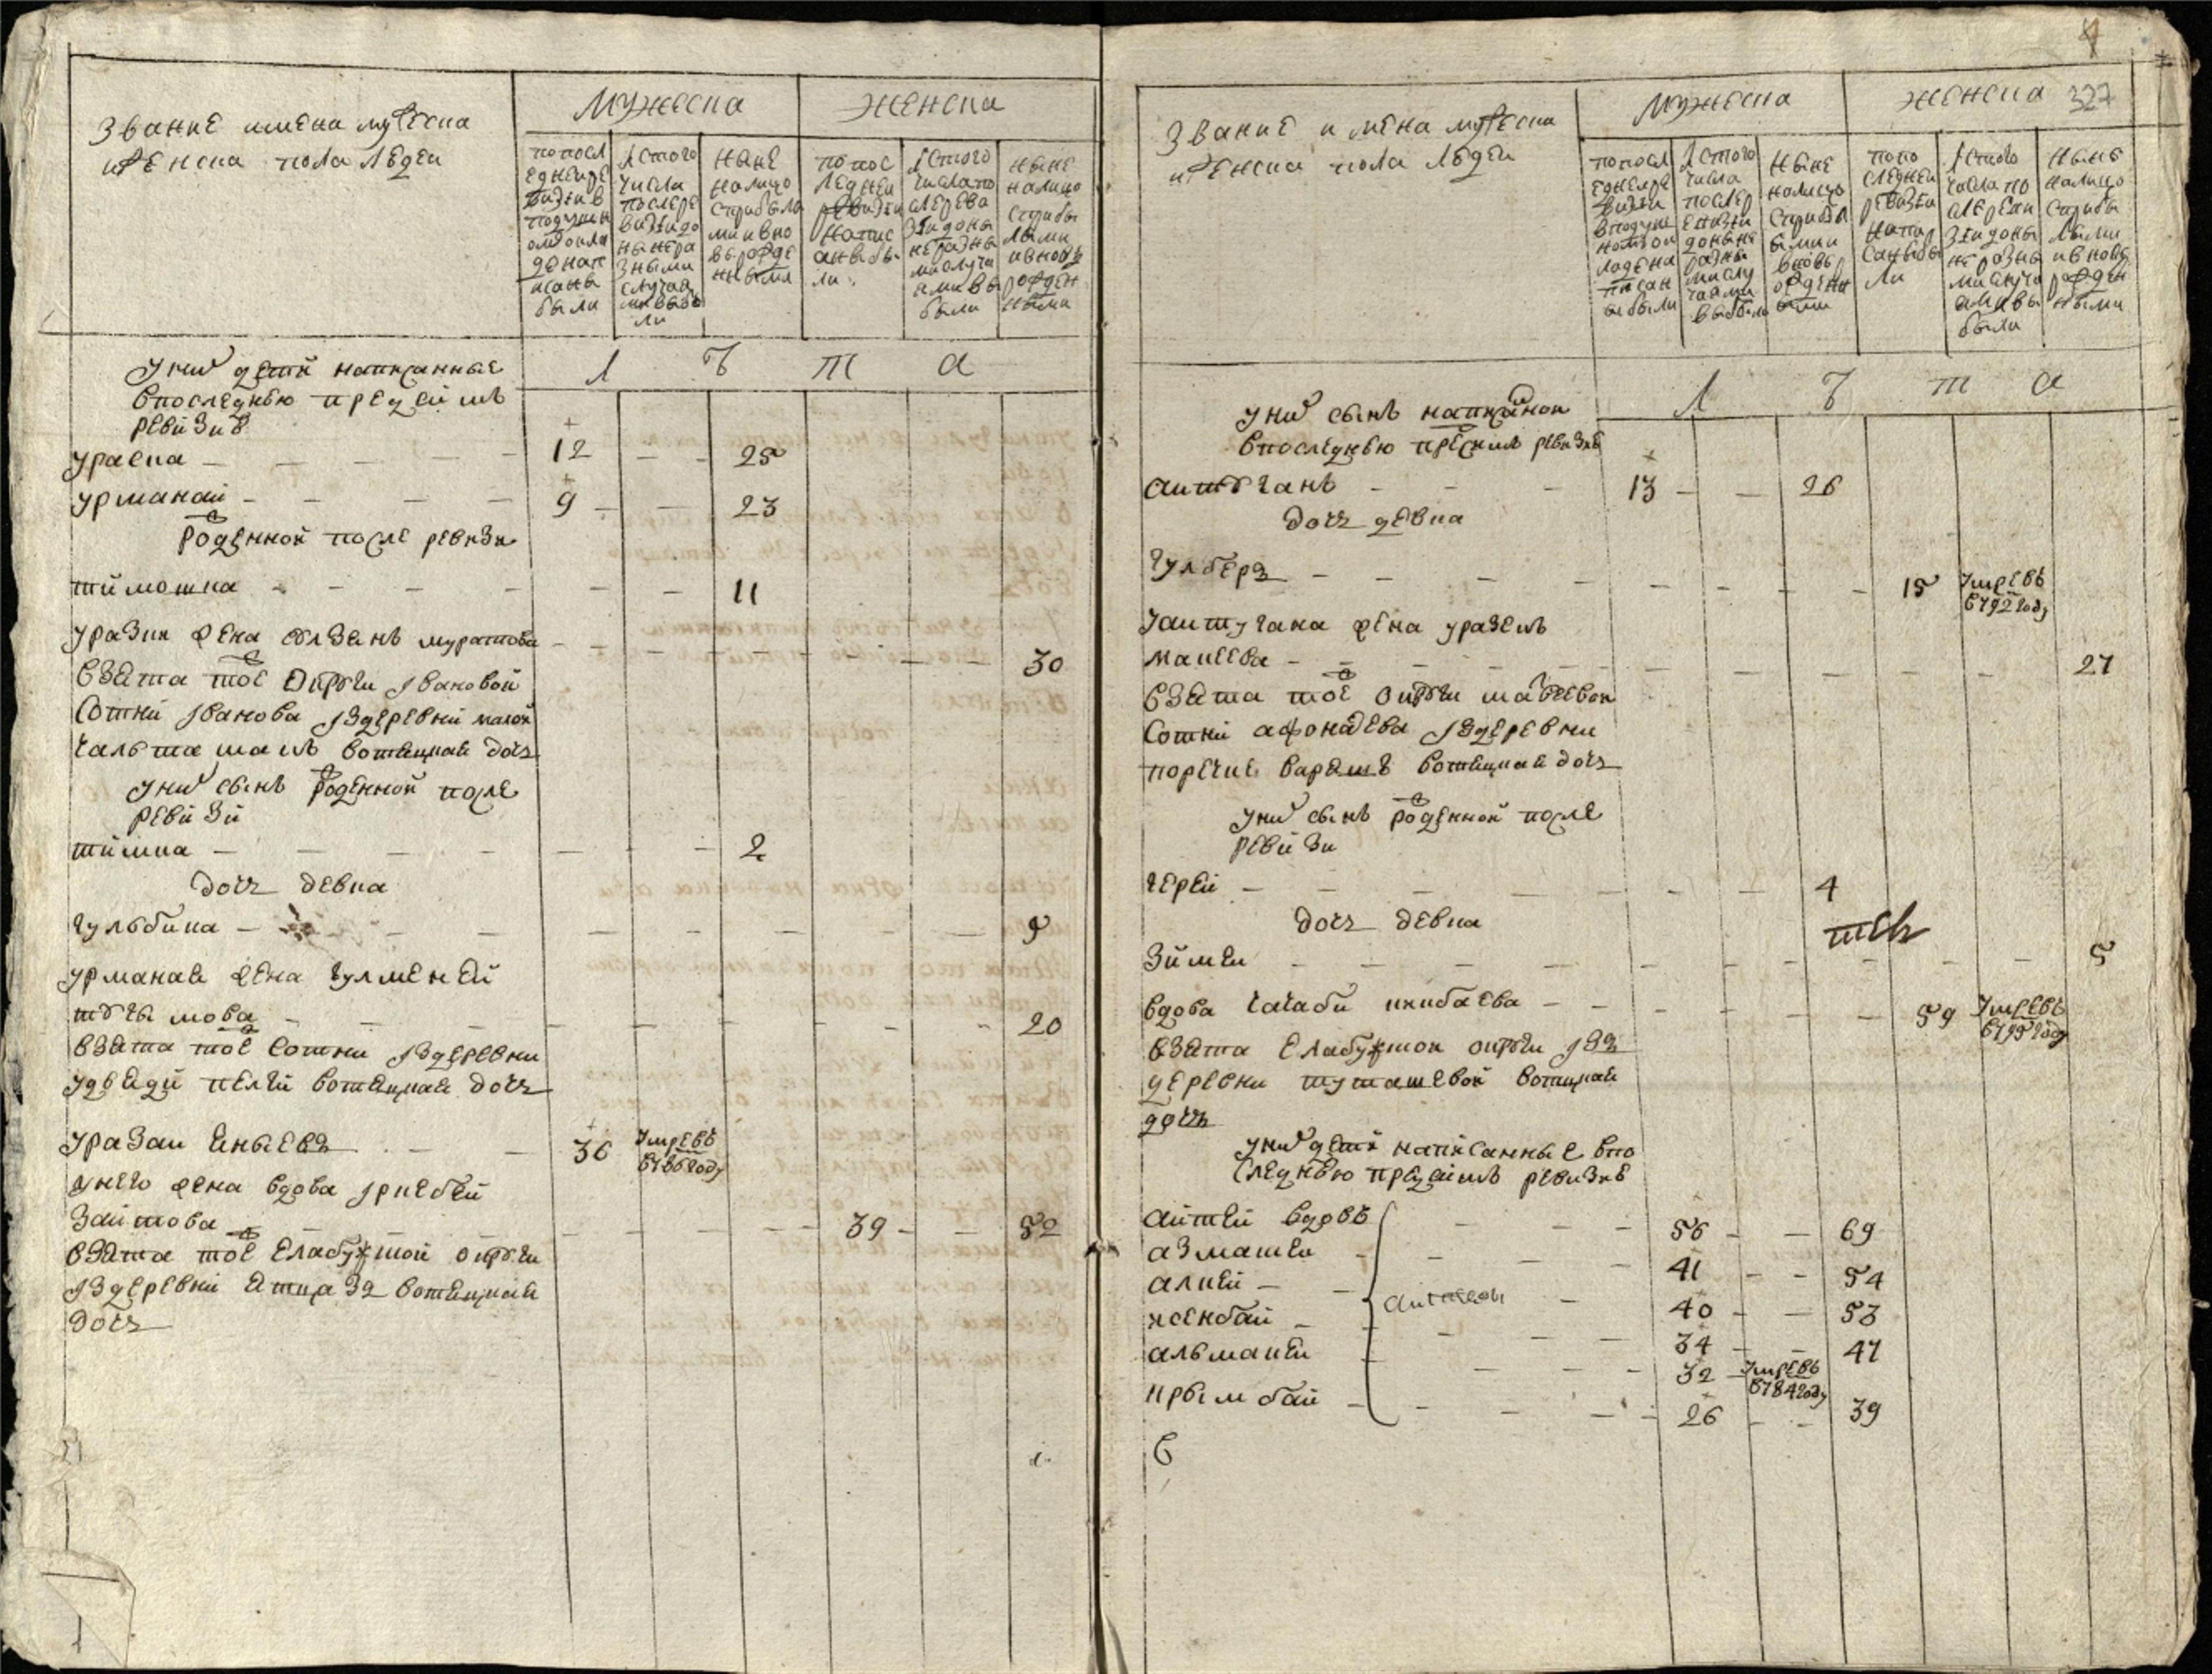 Звание имена мужеска
и женска пола людей
Мужеска
женска
по посл
едней ре
визии в
подушн
ом окла
де нап
исаны
были
Ис того
числа
после ре
визии до
ныне ра
зными
случая
ми выбы
ли
ныне
налицо
с прибылы
ми и вно
вь рожде
нными
по пос
ледней
ревизии
напис
аны бы
ли
Ис того
числа по
сле реви
зии до ны
не разны
ми случа
ями вы
были
ныне
налицо
с прибы
лыми
и вновь
рожден
ными
л ѣ т а
у них детей написанные
в последнюю пред сим
ревизию
ураска 12 25
урманай 9 23
рожденной после ревизи
тимошка 11
уразки жена сюлзанъ муратова 30
взята той округи ивановой
сотни иванова из деревни малой
чальташамъ вотяцкая дочь
у них сынъ рожденной после
ревизи
тимка 2
дочь девка
гульбика 9
урманая жена гулменей
тѣчимова 20
взята той сотни из деревни
удвяди пелги вотяцкая дочь
уразай яныевъ 36 умре въ
1786 году
у него жена вдова иркебей
заитова 39 52
взята той елабужской округи
из деревни ятцазъ вотяцкая
дочь
4
327
Звание имена мужеска
и женска пола людей
мужеска
женска
по посл
едней ре
визии
в подуш
ном ок
ладе на
писан
ы были
Ис того
числа
после р
евизии
до ныне
разны
ми слу
чаями
выбыли
ныне
налицо
с прибыл
ыми и
вновь р
ожденн
ыми
по по
следней
ревизии
напи
саны бы
ли
Ис того
числа по
сле реви
зии до ны
не разны
ми случа
ями вы
были
ныне
налицо
с прибы
лыми
и вновь
рожден
ными
л ѣ т а
у них сынъ написанной
в последнюю пред сим ревизию
аитѣганъ 13 26
дочь девка
гулберъ 15 умре въ
1792 году
у аитугана жена уразель
макеева 27
взята той округи
сотни афонасева из деревни
поречие варяшъ вотяцкая дочь
у них сынъ рожденной после
ревизи
герей 4
дочь девка
зимеи 5
вдова чачаби кибаева 59 умре въ
1795 году
взята елабужской округи изъ
деревни туташевой вотяцкая
дочь
у них детей написанные в по
следнюю пред сим ревизию
аитей вдовъ 56 69
азматеи 41 54
алкей 40 53
исенбай 34 47
альмакеи 32 умре въ
1784 году
ирымбай 26 39
в